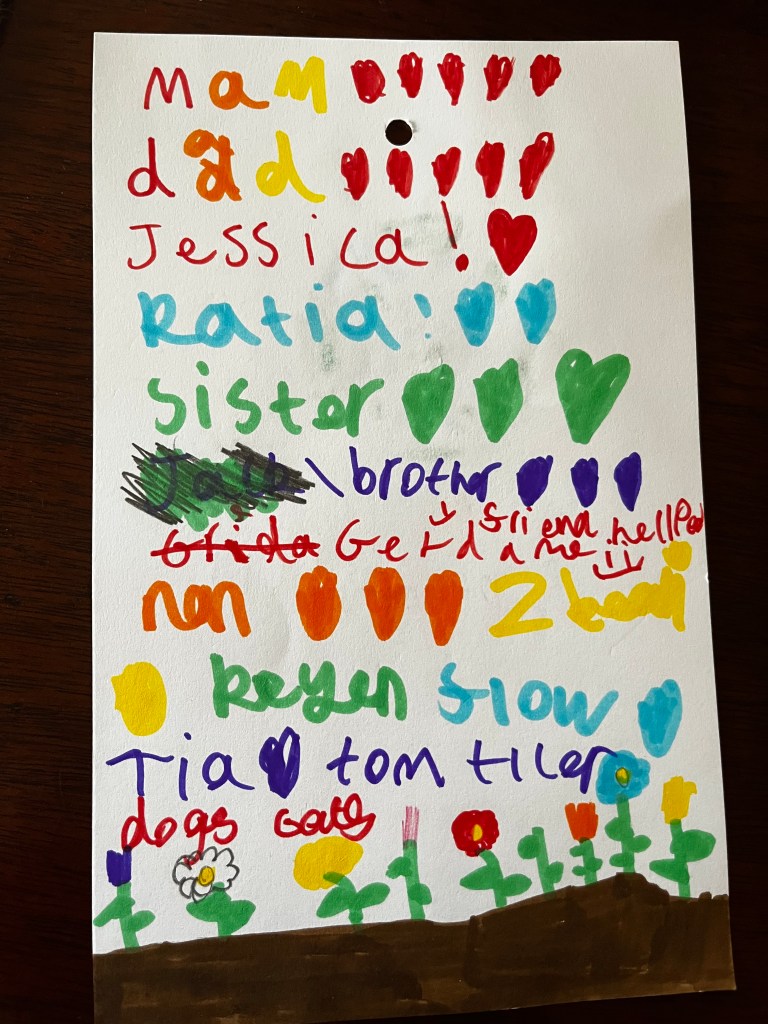 Mam
dad
Jessica!
Katia:
sister
Jack \ brother
Grida Gerda friend hellped me
nan 2
keyen flow
Tia tom tiler
dogs cats